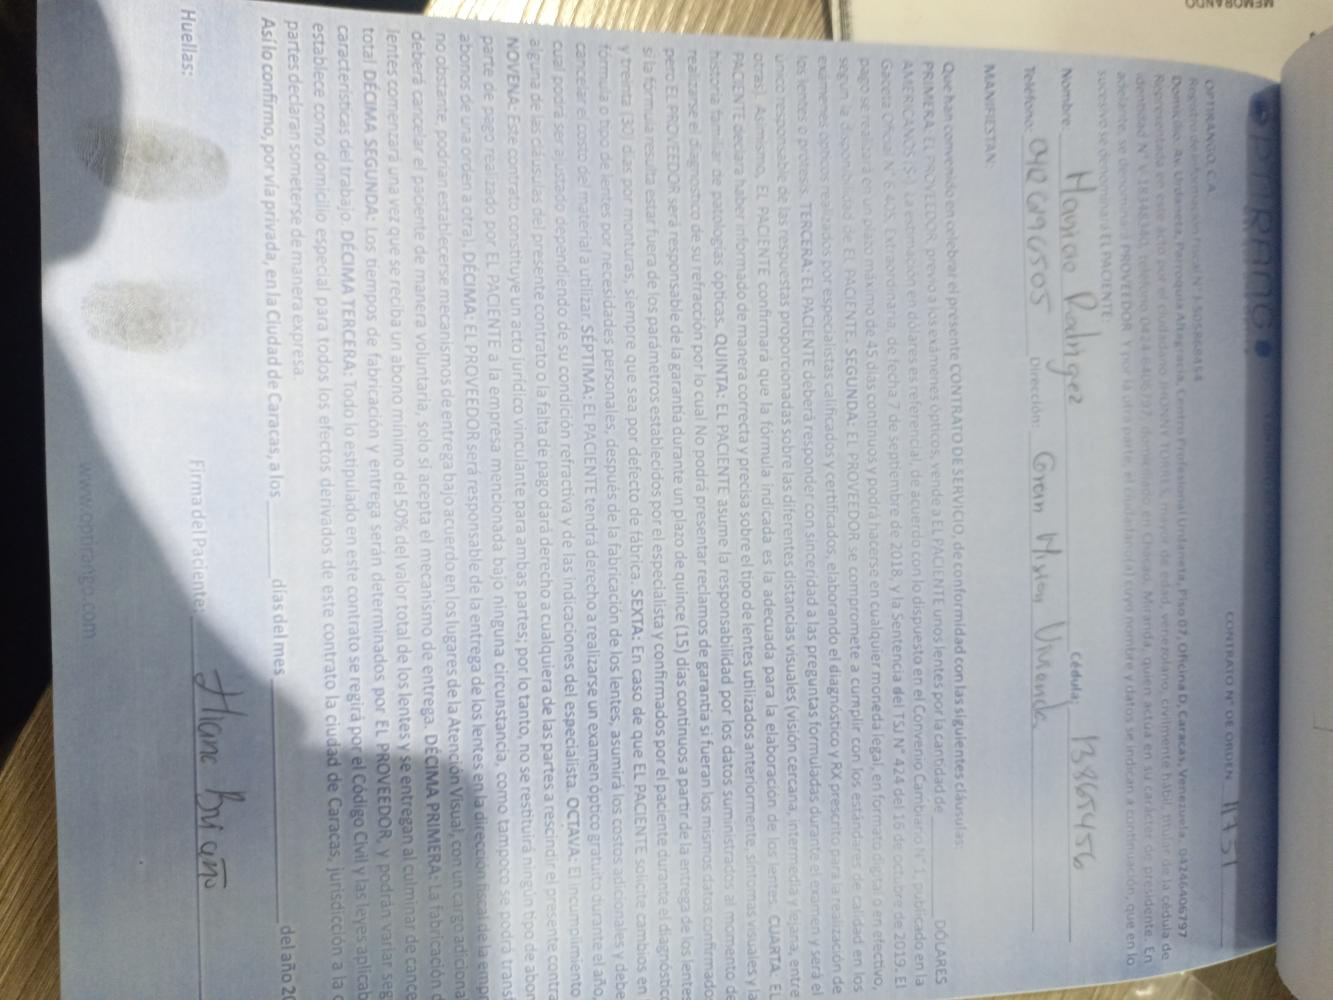 MEMORANDO
OPTIRANGO
CONTRATO N° DE ORDEN 11751
OPTIRANGO, C.A
Registro de Información Fiscal N° J-505868454
Domicilio, Av. Urdaneta, Parroquia Altagracia, Centro Profesional Urdaneta, Piso 07, Oficina D, Caracas, Venezuela. 04246406797
Representada en este acto por el ciudadano JHONNY TORRES, mayor de edad, venezolano, civilmente hábil, titular de la cédula de
identidad N° teléfono 0424 6406797, domiciliado en Chacao, Miranda, quien actúa en su carácter de presidente. En
adelante, se denominará PROVEEDOR. Y por la otra parte, el ciudadano(a) cuyo nombre y datos se indican a continuación, que en lo
sucesivo se denominará EL PACIENTE:
Nombre: Cédula: 13865456
Teléfono: Dirección: Gran Mision Vivienda
MANIFIESTAN:
Que han convenido en celebrar el presente CONTRATO DE SERVICIO, de conformidad con las siguientes cláusulas:
PRIMERA. EL PROVEEDOR, previo a los exámenes ópticos, vende a EL PACIENTE unos lentes por la cantidad de DÓLARES
AMERICANOS ($). La estimación en dólares es referencial, de acuerdo con lo dispuesto en el Convenio Cambiario N° 1, publicado en la
Gaceta Oficial N° 6.405, Extraordinaria, de fecha 7 de septiembre de 2018, y la Sentencia del TSJ N° 424 del 16 de octubre de 2019. El
pago se realizará en un plazo máximo de 45 días continuos y podrá hacerse en cualquier moneda legal, en formato digital o en efectivo,
según la disponibilidad de EL PACIENTE. SEGUNDA: EL PROVEEDOR se compromete a cumplir con los estándares de calidad en los
exámenes ópticos realizados por especialistas calificados y certificados, elaborando el diagnóstico y RX prescrito para la realización de
los lentes o prótesis. TERCERA: EL PACIENTE deberá responder con sinceridad a las preguntas formuladas durante el examen y será el
único responsable de las respuestas proporcionadas sobre las diferentes distancias visuales (visión cercana, intermedia y lejana, entre
otras). Asimismo, EL PACIENTE confirmará que la fórmula indicada es la adecuada para la elaboración de los lentes. CUARTA. EL
PACIENTE declara haber informado de manera correcta y precisa sobre el tipo de lentes utilizados anteriormente, síntomas visuales y la
historia familiar de patologías ópticas. QUINTA: EL PACIENTE asume la responsabilidad por los datos suministrados al momento de
realizarse el diagnóstico de su refracción por lo cual No podrá presentar reclamos de garantía si fueran los mismos datos confirmados
pero EL PROVEEDOR será responsable de la garantía durante un plazo de quince (15) días continuos a partir de la entrega de los lentes
y treinta (30) días por monturas, siempre que sea por defecto de fábrica. SEXTA: En caso de que EL PACIENTE solicite cambios en
si la fórmula resulta estar fuera de los parámetros establecidos por el especialista y confirmados por el paciente durante el diagnóstico
fórmula o tipo de lentes por necesidades personales, después de la fabricación de los lentes, asumirá los costos adicionales y debe
cancelar el costo del material a utilizar. SÉPTIMA: EL PACIENTE tendrá derecho a realizarse un examen óptico gratuito durante el año,
cual podrá ser ajustado dependiendo de su condición refractiva y de las indicaciones del especialista. OCTAVA: El incumplimiento
alguna de las cláusulas del presente contrato o la falta de pago dará derecho a cualquiera de las partes a rescindir el presente contra
NOVENA: Este contrato constituye un acto jurídico vinculante para ambas partes; por lo tanto, no se restituirá ningún tipo de abon
parte de pago realizado por EL PACIENTE a la empresa mencionada bajo ninguna circunstancia, como tampoco se podrá trans
abonos de una orden a otra). DÉCIMA: EL PROVEEDOR será responsable de la entrega de los lentes en la dirección fiscal de la empr
no obstante, podrían establecerse mecanismos de entrega bajo acuerdo en los lugares de la Atención Visual, con un cargo adiciona
deberá cancelar el paciente de manera voluntaria, solo si acepta el mecanismo de entrega. DÉCIMA PRIMERA: La fabricación d
lentes comenzará una vez que se reciba un abono mínimo del 50% del valor total de los lentes y se entregan al culminar de cance
total DÉCIMA SEGUNDA: Los tiempos de fabricación y entrega serán determinados por EL PROVEEDOR, y podrán variar seg
características del trabajo. DÉCIMA TERCERA. Todo lo estipulado en este contrato se regirá por el Código Civil y las leyes aplicab
establece como domicilio especial para todos los efectos derivados de este contrato la ciudad de Caracas, jurisdicción a la c
partes declaran someterse de manera expresa.
Así lo confirmo, por vía privada, en la Ciudad de Caracas, a los días del mes del año 20
Huellas: Firma del Paciente:
www.optirango.com